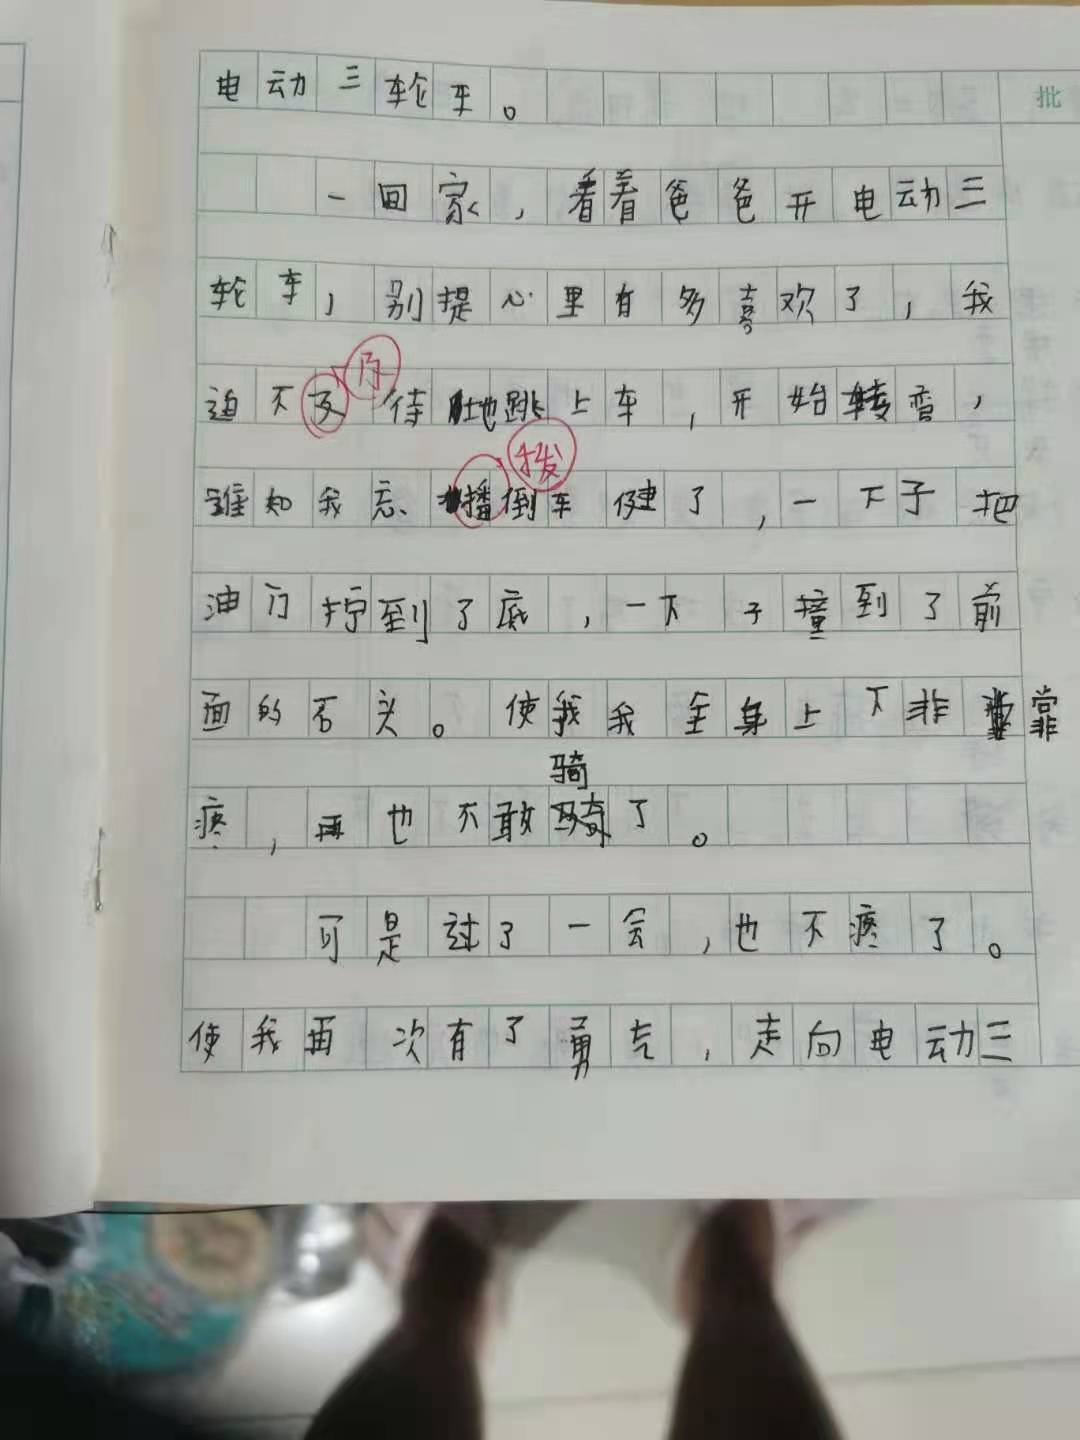 电动三轮车。
批
一回家，看着爸爸开电动三
轮车，别提心里有多喜欢了，我
迫不及待地跳上车，开始转弯，
拨
谁知我忘播倒车健了，一下子把
油门拧到了底，一下子撞到了前
面的石头。使我我全身上下非常
骑
疼，再也不敢骑了。
可是过了一会，也不疼了。
使我再次有了勇气，走向电动三